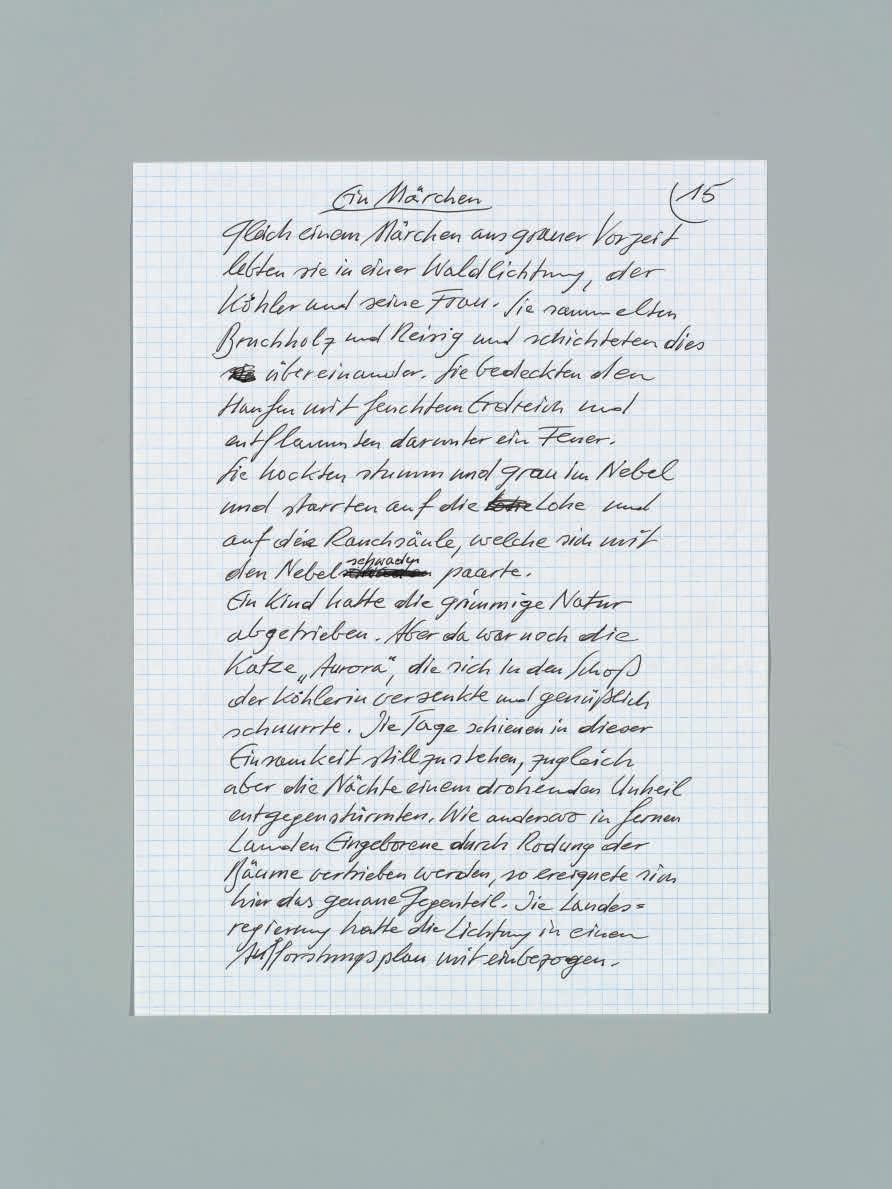 Ein Märchen
15
Gleich einem Märchen aus grauer Vorzeit
lebten sie in einer Waldlichtung, der
Köhler und seine Frau. Sie sammelten
Bruchholz und Reisig und schichteten dies
übereinander. Sie bedeckten den
Haufen mit feuchtem Erdreich und
entflammten darunter ein Feuer.
Sie hockten stumm und grau im Nebel
und starrten auf die Lohe und
auf die Rauchsäule, welche sich mit
den Nebelschwaden paarte.
Ein Kind hatte die grimmige Natur
abgetrieben. Aber da war noch die
Katze „Aurora“, die sich in den Schoß
der Köhlerin versenkte und genüßlich
schnurrte. Die Tage schienen in dieser
Einsamkeit stillzustehen, zugleich
aber die Nächte einem drohenden Unheil
entgegenstürmten. Wie anderswo in fernen
Landen Eingeborene durch Rodung der
Bäume vertrieben werden, so ereignete sich
hier das genaue Gegenteil. Die Landes=
regierung hatte die Lichtung in einen
Aufforstungsplan mit einbezogen.